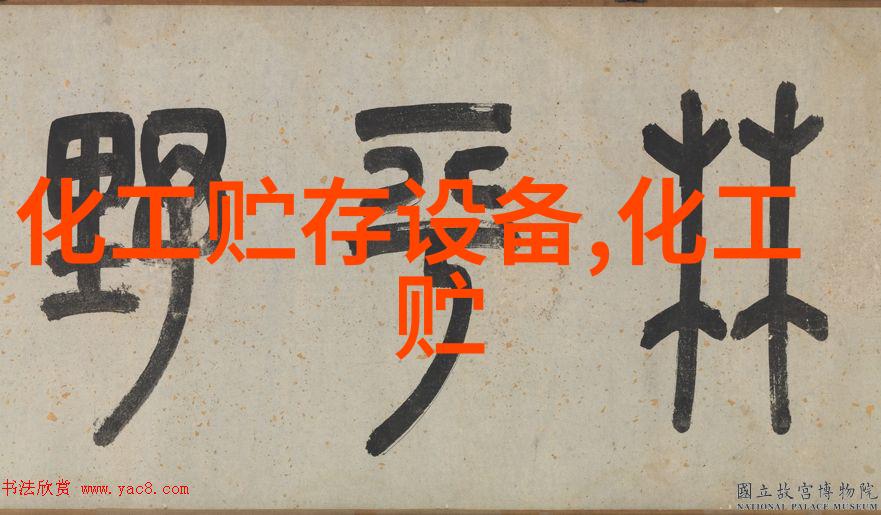 林平野
化工贮存设备,化工
贮
书法欣赏 www.yac8.com
國立故宮博物院
NATIONAL PALACE MUSEUM